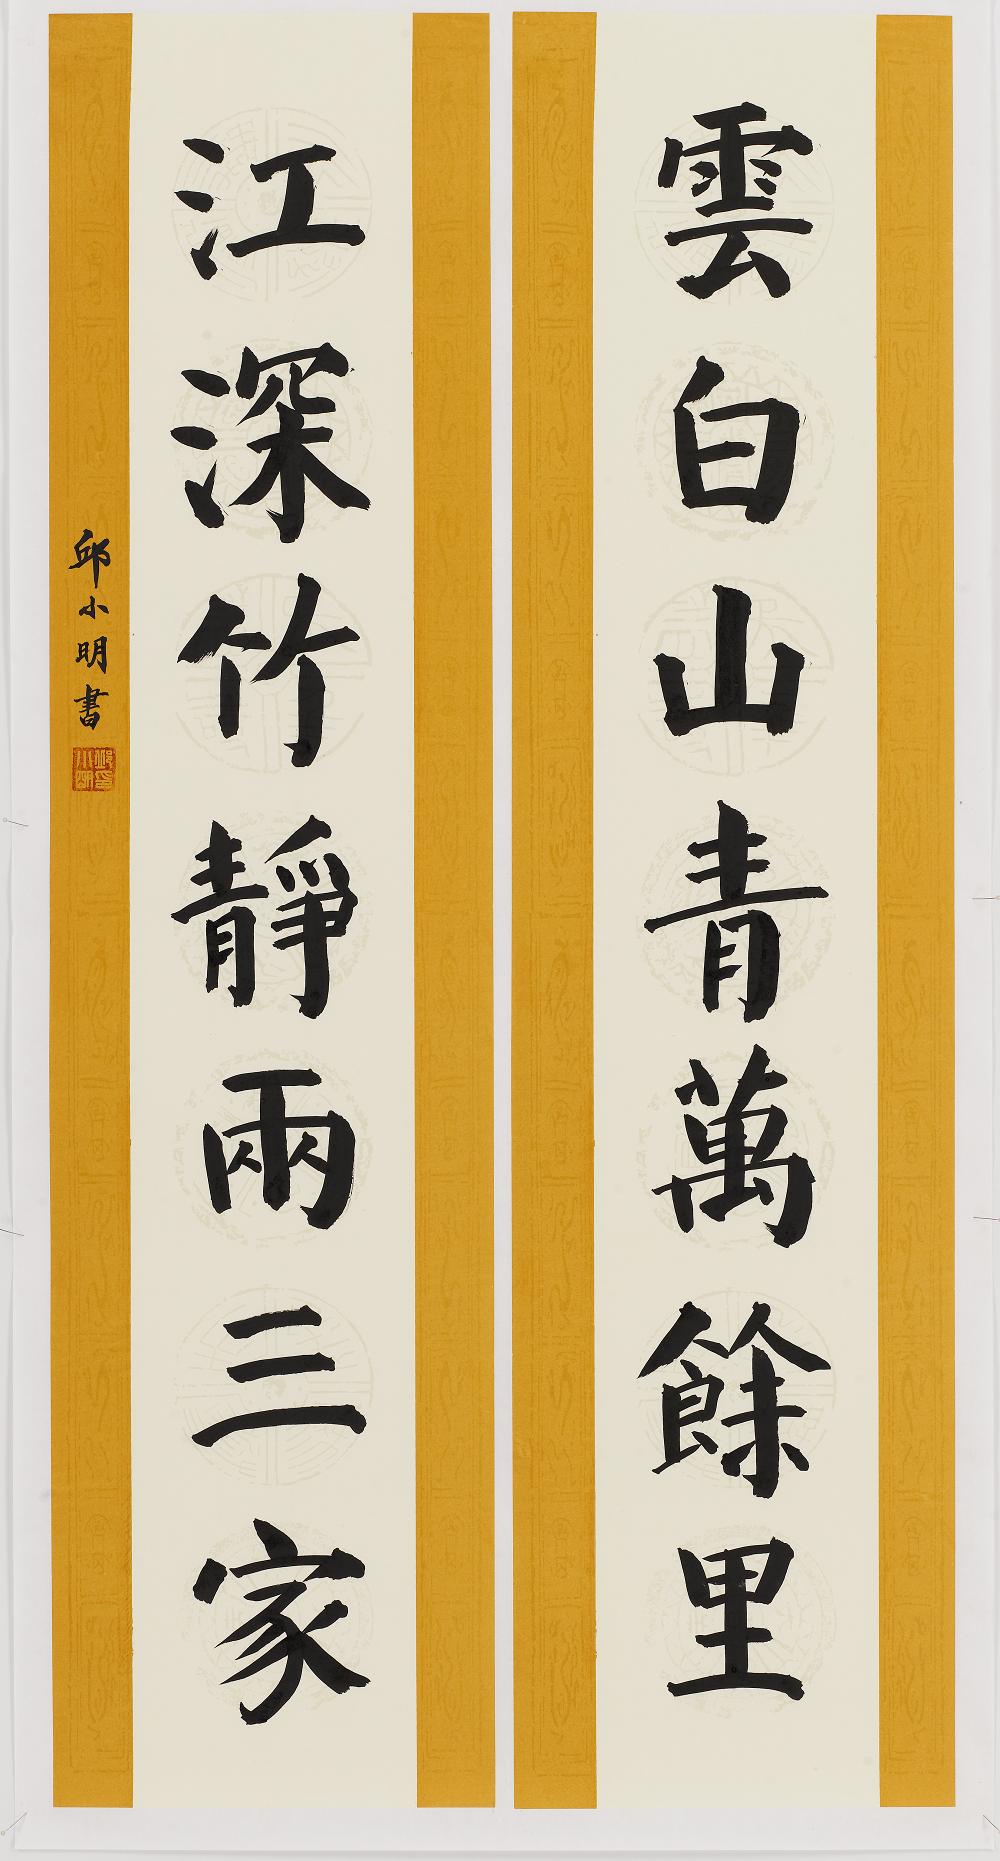 雲白山青萬餘里
江深竹靜兩三家
邱小明書